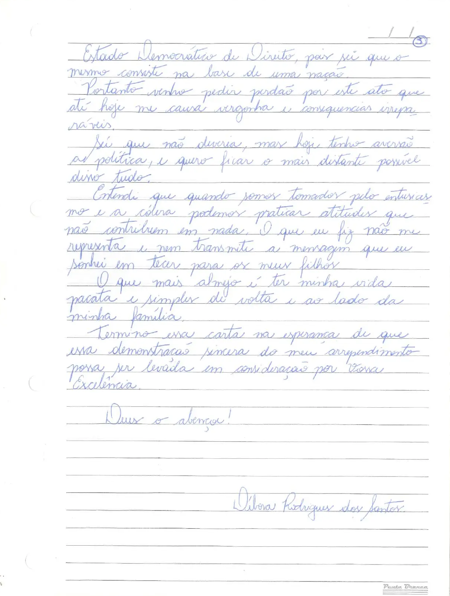 / /
3
Estado Democrático de Direito, pois sei que o
mesmo consiste na base de uma nação.
Portanto venho pedir perdão por este ato que
até hoje me causa vergonha e consequencias irrepa-
ráveis.
Sei que não deveria, mas hoje tenho aversão
a política, e quero ficar o mais distante possível
disso tudo.
Entendi que quando somos tomados pelo entusias-
mo e a cólera podemos praticar atitudes que
não contribuem em nada. O que eu fiz não me
representa e nem transmite a mensagem que eu
sonhei em tecer para os meus filhos.
O que mais almejo é ter minha vida
pacata e simples de volta e ao lado da
minha família.
Termino essa carta na esperança de que
essa demonstração sincera do meu arrependimento
possa ser levada em consideração por Vossa
Excelência.
Deus o abençoe!
Débora Rodrigues dos Santos